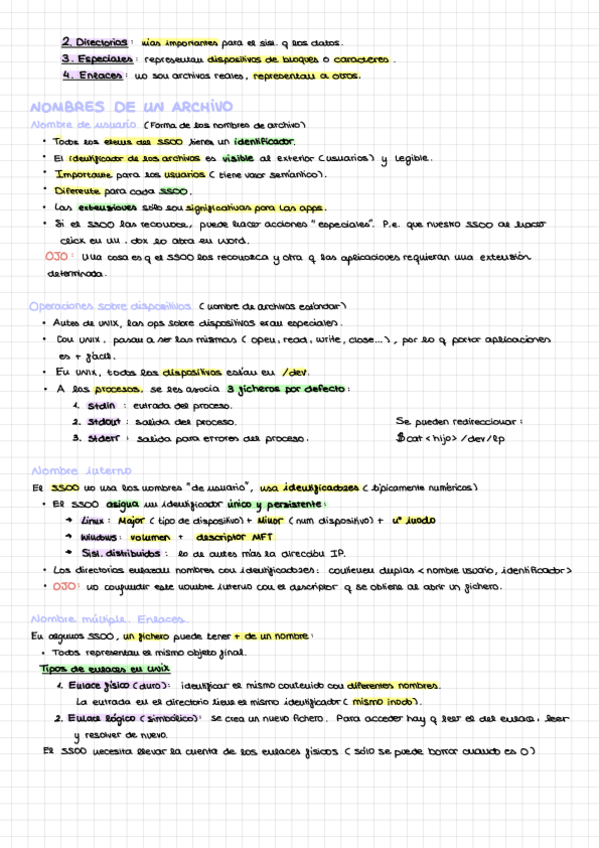 2. Directorios: más importantes para el sist. q los datos.
3. Especiales: representan dispositivos de bloques o caracteres.
4. Enlaces: no son archivos reales, representan a otros.
NOMBRES DE UN ARCHIVO
Nombre de usuario (Forma de los nombres de archivo)
• Todos los elems del SSOO tienen un identificador.
• El identificador de los archivos es visible al exterior (usuarios) y legible.
• Importante para los usuarios (tiene valor semántico).
• Diferente para cada SSOO.
• Las extensiones sólo son significativas para las apps.
• Si el SSOO las reconoce, puede hacer acciones "especiales". P.e. que nuestro SSOO al hacer
click en un .dox lo abra en Word.
OJO: Una cosa es q el SSOO las reconozca y otra q las aplicaciones requieran una extensión
determinada.
Operaciones sobre dispositivos (nombre de archivos estándar)
• Antes de UNIX, las ops sobre dispositivos eran especiales.
• Con UNIX, pasan a ser las mismas (open, read, write, close...), por lo q portar aplicaciones
es + fácil.
• En UNIX, todos los dispositivos están en /dev.
• A los procesos, se les asocia 3 ficheros por defecto:
1. Stdin: entrada del proceso.
2. Stdout: salida del proceso. Se pueden redireccionar:
3. Stderr: salida para errores del proceso. $cat <hijo> /dev/lp
Nombre interno
El SSOO no usa los nombres "de usuario", usa identificadores (típicamente numéricos)
• El SSOO asigna un identificador único y persistente:
→ Linux: Major (tipo de dispositivo) + Minor (num dispositivo) + nº inodo
→ Windows: volumen + descriptor MFT
→ Sist. distribuidos: lo de antes más la dirección IP.
• Los directorios enlazan nombres con identificadores: contienen duplas <nombre usuario, identificador>
• OJO: no confundir este nombre interno con el descriptor q se obtiene al abrir un fichero.
Nombre múltiple. Enlaces.
En algunos SSOO, un fichero puede tener + de un nombre:
• Todos representan el mismo objeto final.
Tipos de enlaces en UNIX
1. Enlace físico (duro): identificar el mismo contenido con diferentes nombres.
La entrada en el directorio tiene el mismo identificador (mismo inodo).
2. Enlace lógico (simbólico): se crea un nuevo fichero. Para acceder hay q leer el del enlace, leer
y resolver de nuevo.
El SSOO necesita llevar la cuenta de los enlaces físicos (sólo se puede borrar cuando es 0)